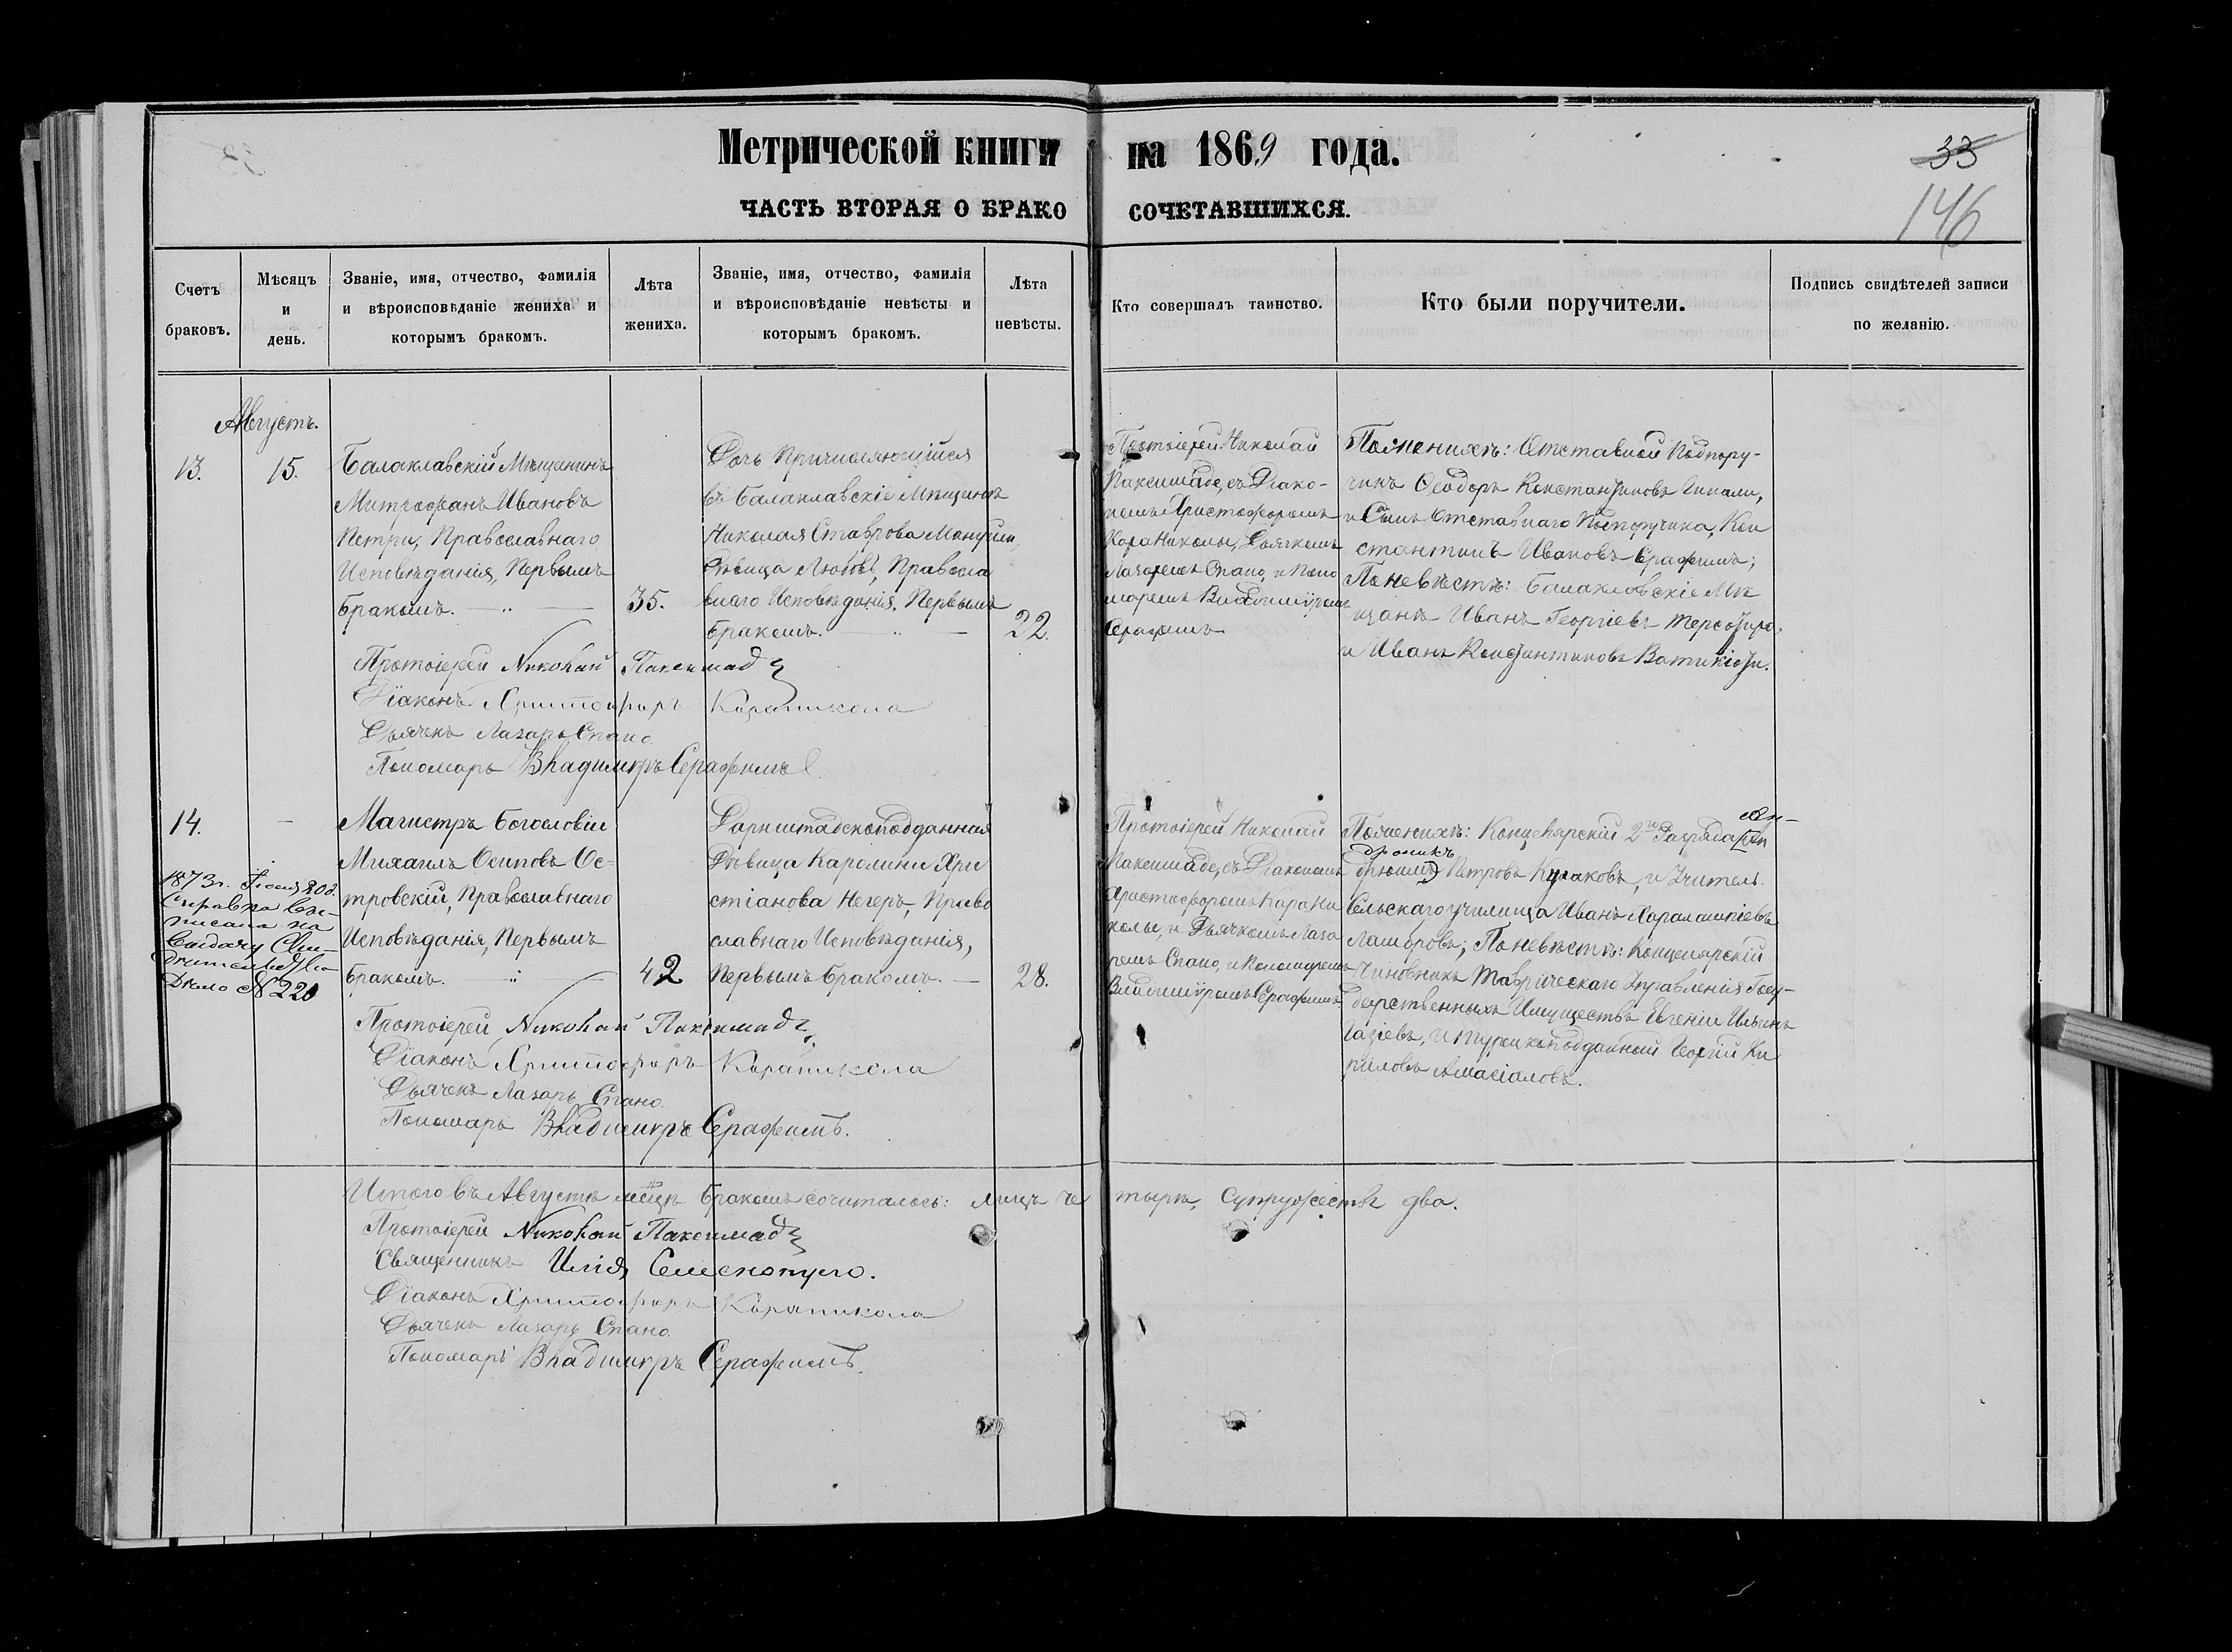 Метрической книги на 1869 года.
33
146
ЧАСТЬ ВТОРАЯ О БРАКО СОЧЕТАВШИХСЯ.
Счетъ
браковъ.
Мѣсяцъ
и
день.
Званіе, имя, отчество, фамилія
и вѣроисповѣданіе жениха и
которымъ бракомъ.
Лѣта
жениха.
Званіе, имя, отчество, фамилія
и вѣроисповѣданіе невѣсты и
которымъ бракомъ.
Лѣта
невѣсты.
Кто совершалъ таинство.
Кто были поручители.
Подпись свидѣтелей записи
по желанію.
Августъ.
13.
15.
Балаклавскій Мѣщанинъ
Митрофанъ Ивановъ
Петри, Православнаго
Исповѣданія, Первымъ
бракомъ.
35.
Дочь Причисляющійся
въ Балаклавскіе Мѣщане
Николая Ставрова
Дѣвица Любовь, Правосла
внаго Исповѣданія, Первымъ
бракомъ.
22.
Протоіерей Николай
Паксимаде, съ Діако-
номъ Христофоромъ
КараНиколы, Дьячкомъ
Лазаремъ Спано, и Поно
маремъ Владиміромъ
Серафимъ
По Женихѣ: Отставной Подпору-
чикъ Ѳеодоръ Константиновъ
и Сынъ Отставнаго Подпоручика, Кон
стантинъ Ивановъ Серафимъ;
По невѣстѣ: Балаклавскіе Мѣ
щане Иванъ Георгіевъ
и Иванъ Константиновъ Ватикіоти.
Протоіерей Николай Паксимаде
Діаконъ Христофоръ Караникола
Дьячекъ Лазарь Спано
Пономарь Владимиръ Серафимъ
14.
—
1873 г. Іюня 20 д.
Справка вы-
писана на
выдачу
Дѣло № 220
Магистръ Богословіи
Михаилъ Осиповъ Ос-
тровскій, Православнаго
Исповѣданія, Первымъ
бракомъ.
42
Дармштадскоподданная
Дѣвица Каролина Хри
стіанова Негеръ, Право
славнаго Исповѣданія,
Первымъ бракомъ.
28.
Протоіерей Николай
Паксимаде, съ Діакономъ
Христофоромъ КараНи
колы, и Дьячкомъ Лаза
ремъ Спано, и Пономаремъ
Владиміромъ Серафимъ
По женихѣ: Концелярскій 2го Разряда Ан-
дроникъ Петровъ Кулаковъ, и Учитель
Сельскаго училища Иванъ Харалампіевъ
По невѣстѣ: Концелярскій
Чиновникъ Таврическаго Управленія Госу-
дарственныхъ Имуществъ Евгеній Ильинъ
Газіевъ, и турецкоподданный Георгій Ки
риловъ Амасіаловъ.
Протоіерей Николай Паксимаде
Діаконъ Христофоръ Караникола
Дьячекъ Лазарь Спано
Пономарь Владимиръ Серафимъ.
Итого въ Августѣ мѣсцѣ бракомъ сочиталось: лицъ че тыре, Супружествъ два.
Протоіерей Николай Паксимаде
Священникъ Илія Семенопуло.
Діаконъ Христофоръ Караникола
Дьячекъ Лазарь Спано.
Пономарь Владимиръ Серафимъ.